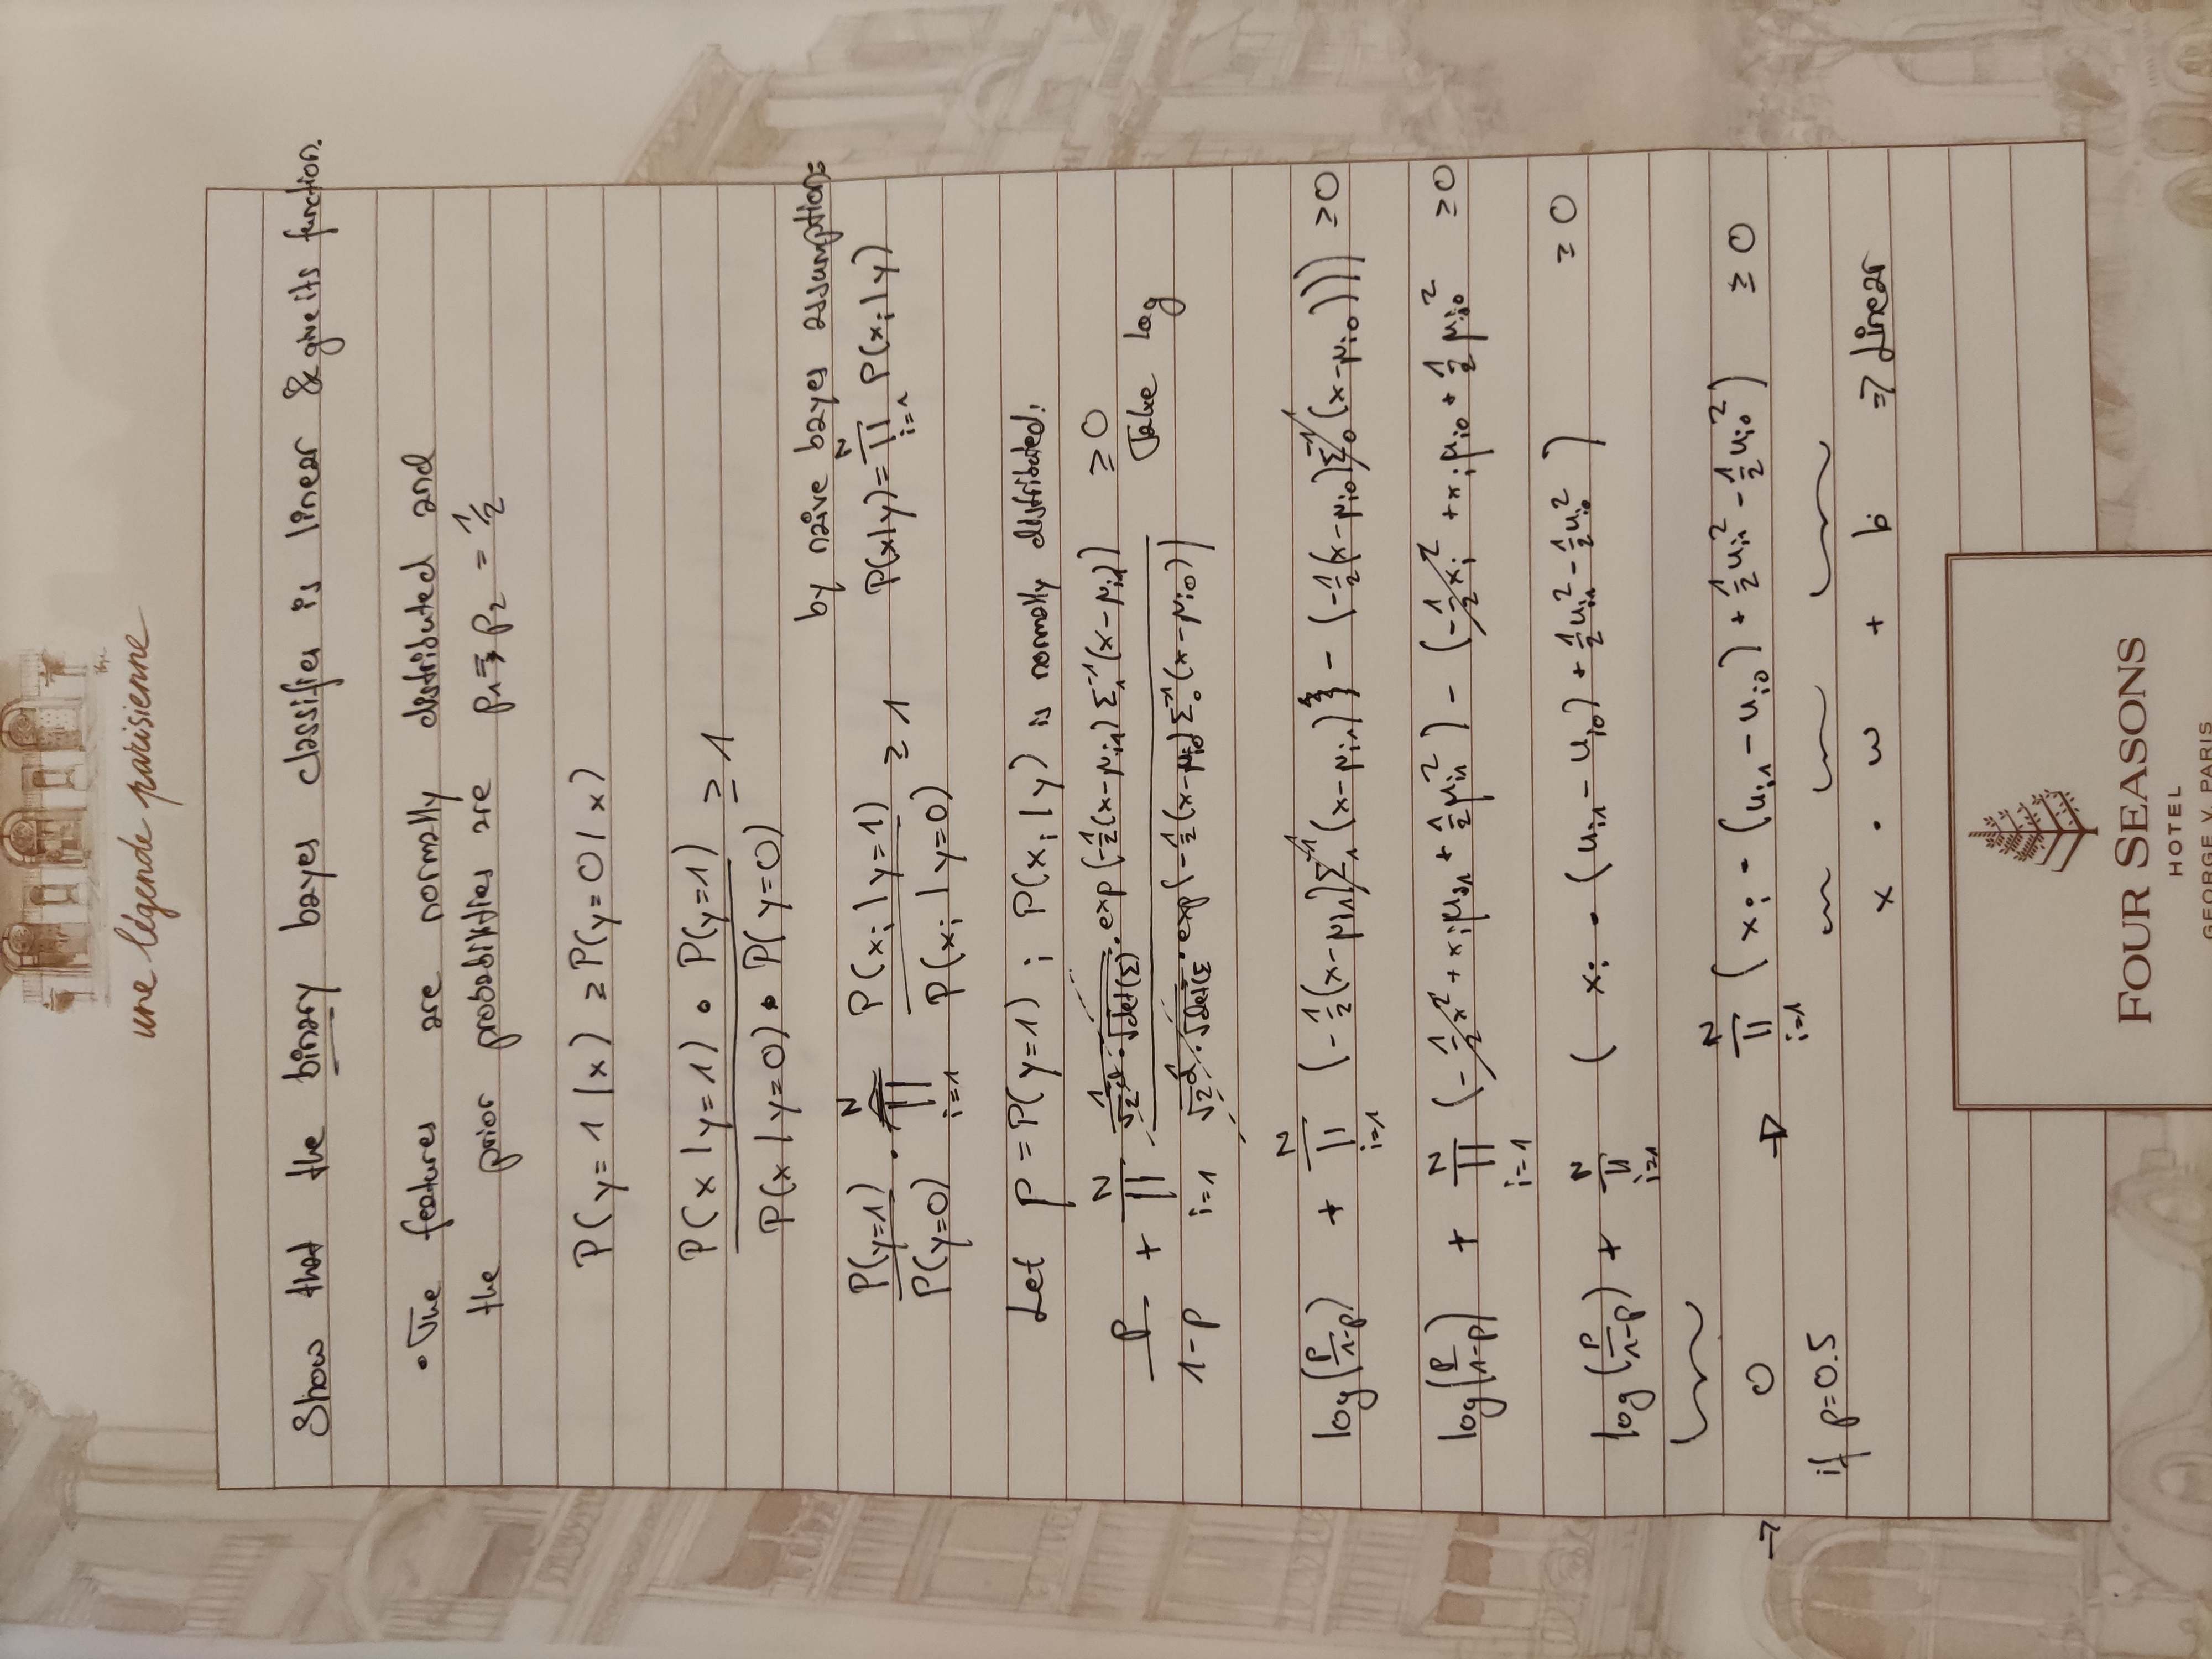 une légende parisienne
Show that the binary bayes classifier is linear & give its function.
• The features are normally distributed and
the prior probabilities are p₁ = p₂ = 1/2
P(y=1|x) ≥ P(y=0|x)
P(x|y=1) • P(y=1) / P(x|y=0) • P(y=0) ≥ 1
by naive bayes assumption:
P(y=1)/P(y=0) · ∏_{i=1}^{N} P(xᵢ|y=1)/P(xᵢ|y=0) ≥ 1 P(x|y) = ∏_{i=1}^{N} P(xᵢ|y)
Let p = P(y=1) ; P(xᵢ|y) is normally distributed.
p/(1-p) + ∏_{i=1}^{N} 1/(√2^d · √det(Σ)) · exp(-1/2(x-μᵢ₁) Σ₁⁻¹ (x-μᵢ₁)) / 1/(√2^d · √det(Σ · exp(-1/2(x-μᵢ₀) Σ₀⁻¹ (x-μᵢ₀)) ≥ 0 Take log
log(p/(1-p)) + ∏_{i=1}^{N} (-1/2(x-μᵢ₁) Σ₁⁻¹ (x-μᵢ₁)) - (-1/2(x-μᵢ₀) Σ₀⁻¹ (x-μᵢ₀))) ≥ 0
log(p/(1-p)) + ∏_{i=1}^{N} (-1/2 x² + xᵢμᵢ₁ + 1/2 μᵢ₁²) - (-1/2 xᵢ² + xᵢμᵢ₀ + 1/2 μᵢ₀² ≥ 0
log(p/(1-p)) + ∏_{i=1}^{N} ( xᵢ • (uᵢ₁ - uᵢ₀) + 1/2 uᵢ₁² - 1/2 uᵢ₀² ) ≥ 0
→ 0 → ∏_{i=1}^{N} ( xᵢ • (uᵢ₁ - uᵢ₀) + 1/2 uᵢ₁² - 1/2 uᵢ₀² ) ≥ 0
if p=0.5
x · w + b ⇒ Linear
FOUR SEASONS
HOTEL
GEORGE V, PARIS